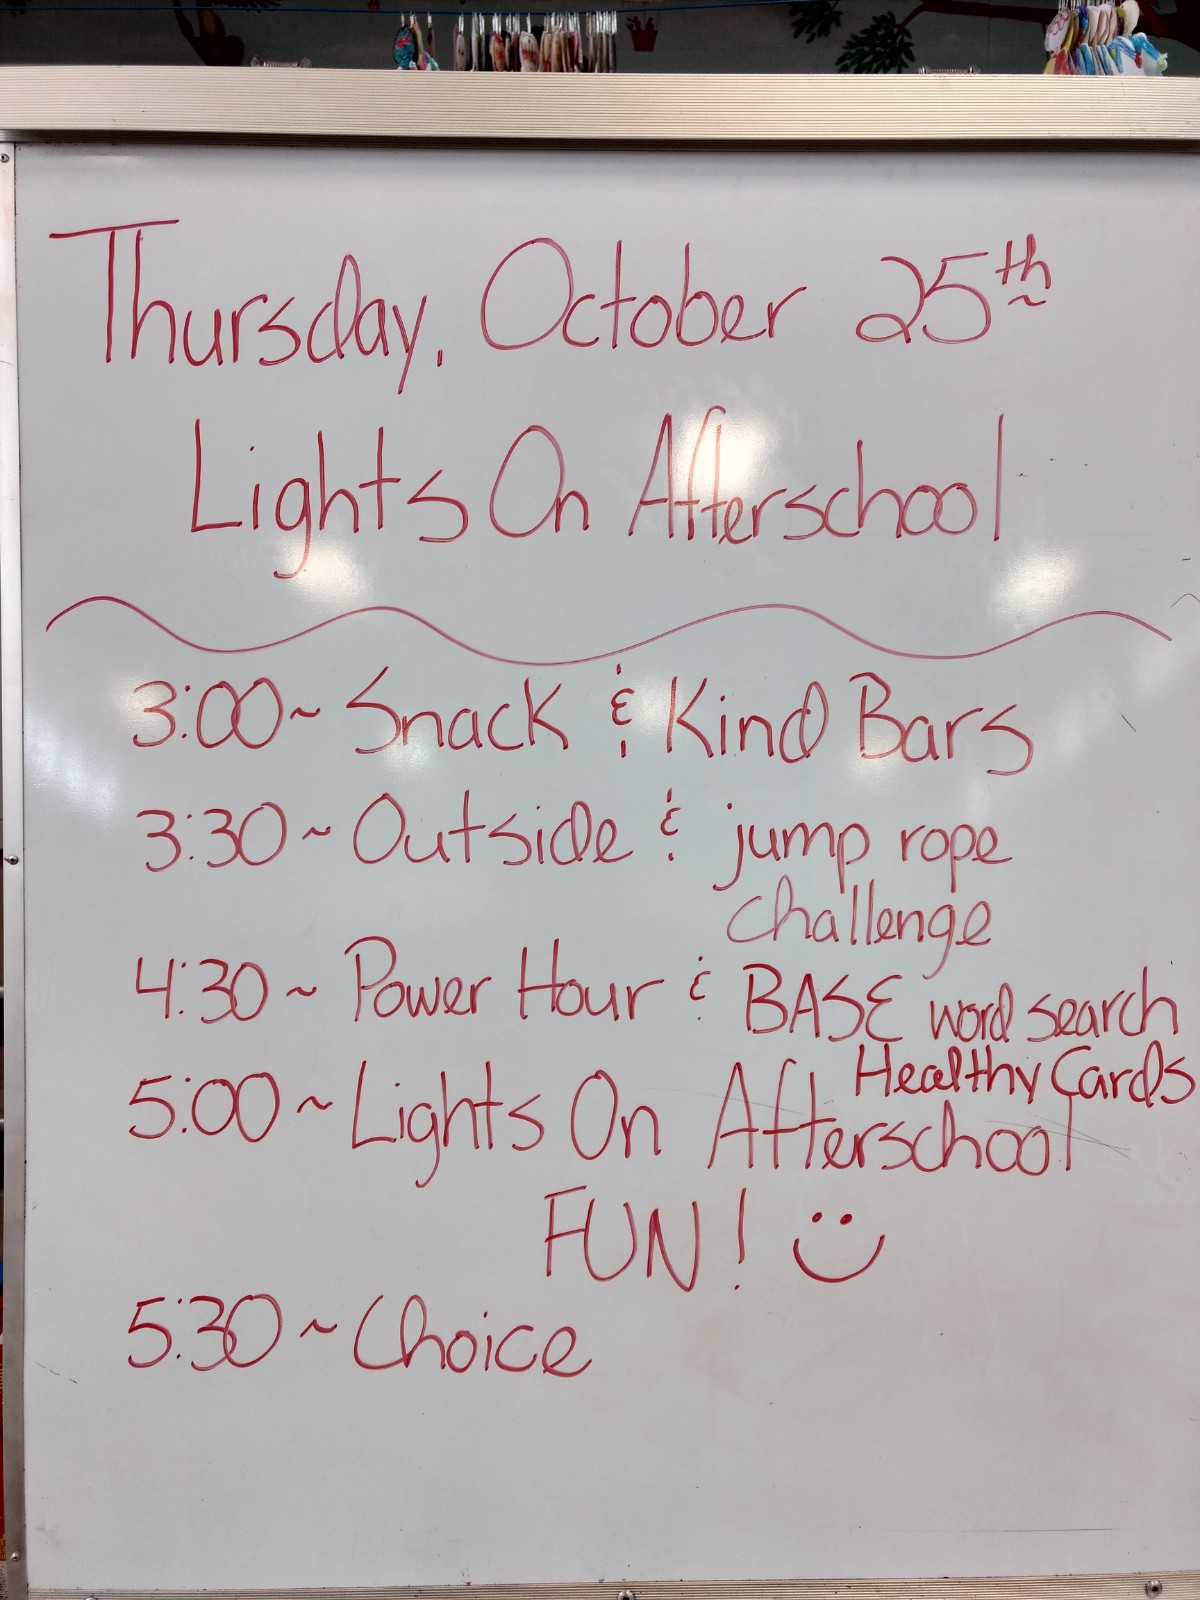 Thursday, October 25th
Lights On Afterschool
3:00~ Snack & Kind Bars
3:30~ Outside & jump rope
challenge
4:30~ Power Hour & BASE word search
Healthy Cards
5:00~ Lights On Afterschool
FUN!
5:30~ Choice